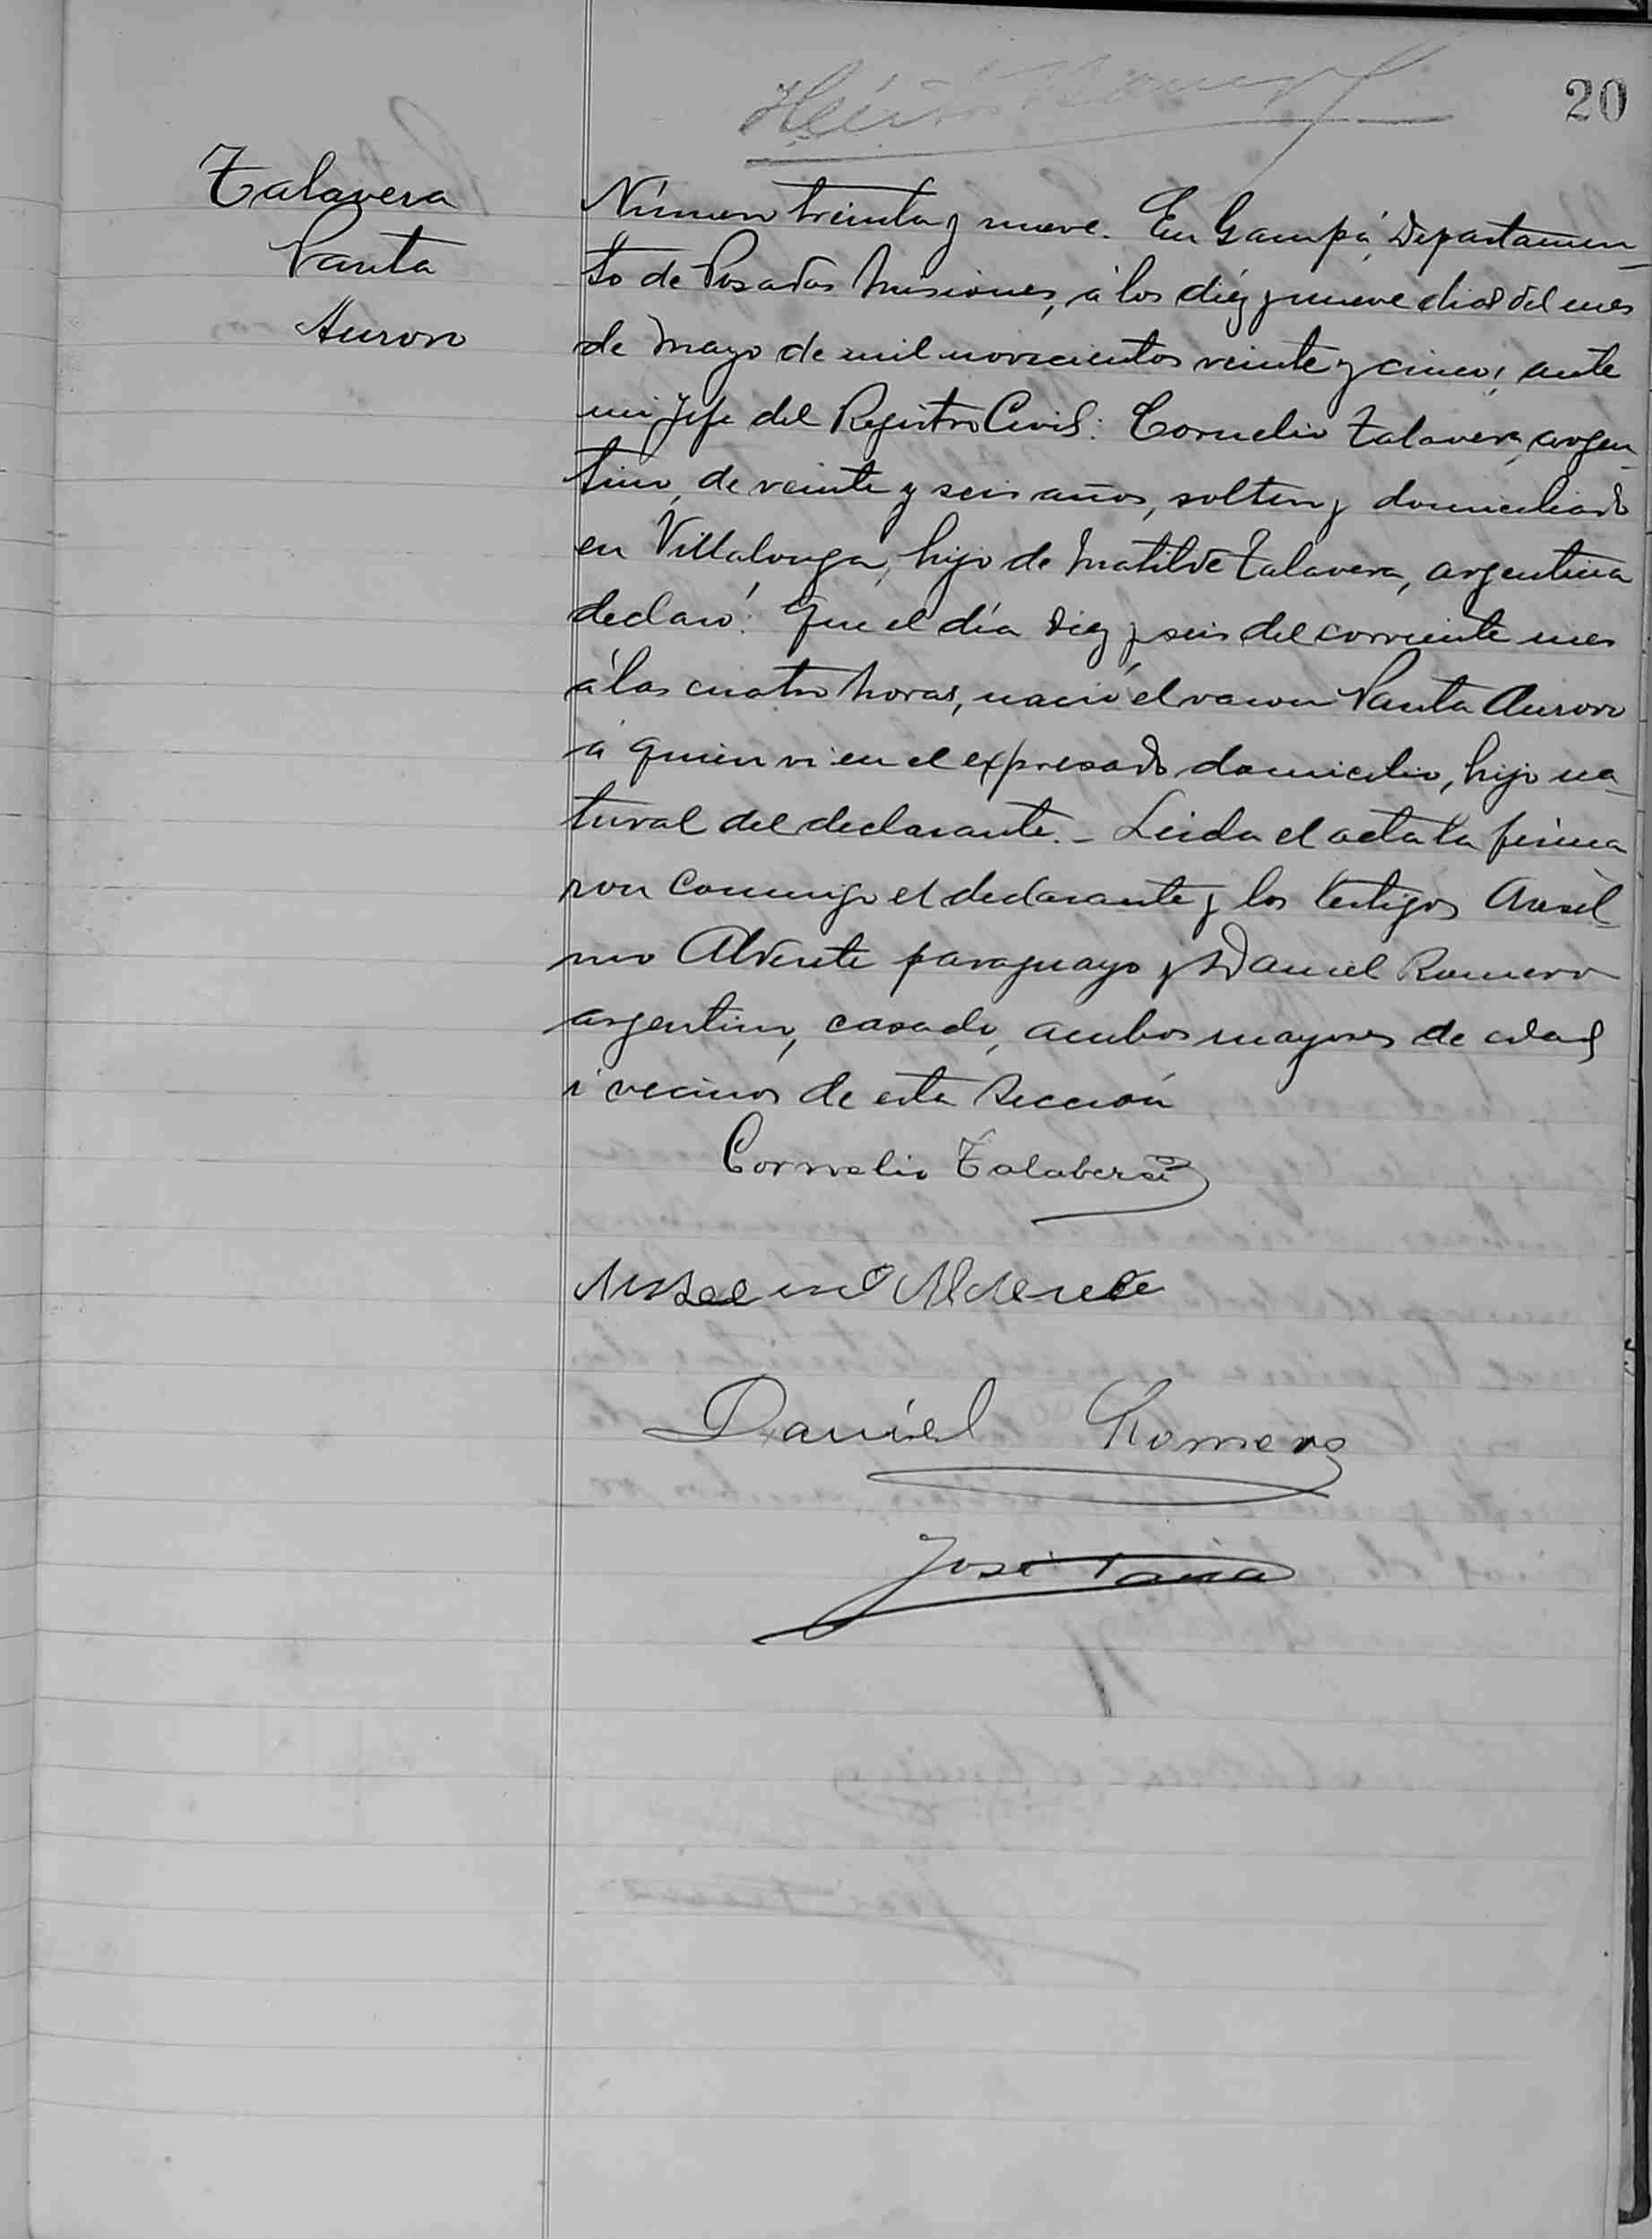 20
Talavera
Panta
Auroro
Número treinta y nueve. En Garupá, Departamen-
to de Posadas Misiones, á los diéz y nueve dias del mes
de Mayo de mil novecientos veinte y cinco; ante
mi Jefe del Registro Civil: Cornelio Talavera, argen-
tino, de veinte y seis años, soltero y domiciliado
en Villalonga, hijo de Matilde Talavera, argentina
declaró: Que el día diez y seis del corriente mes
á las cuatro horas, nació el varon Panta Auroro
á quien vi en el expresado domicilio, hijo na-
tural del declarante.- Leida el acta la firma
ron conmigo el declarante y los testigos Ansel-
mo Alderete paraguayo y Daniel Romero
argentino, casado, ambos mayores de edad
i vecinos de esta Sección
Cornelio Talabera
Anselmo Alderete
Daniel Romero
José